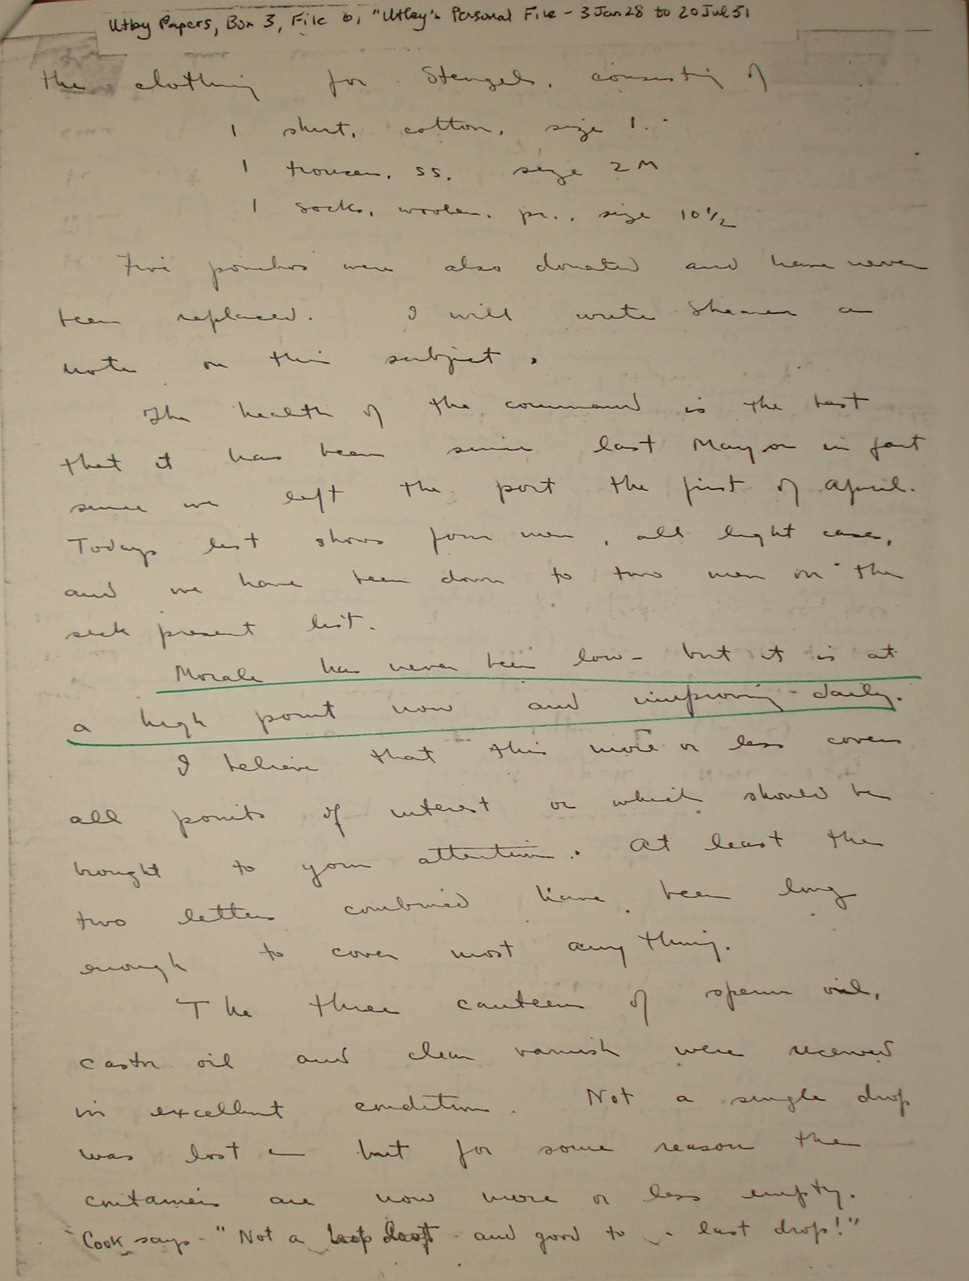 Utley Papers, Box 3, File 6, "Utley's Personal File - 3 Jan 28 to 20 Jul 31
the clothing for Stengel, consisting of
1 shirt, cotton, size 1.
1 trousers, SS, size 2 M
1 socks, woolen, pr., size 10 1/2
Five ponchos were also donated and have never
been replaced. I will write Shearer a
note on this subject.
The health of the command is the best
that it has been since last May or in fact
since we left the port the first of April.
Todays list shows four men, all light case,
and we have been down to two men on the
sick present list.
Morale has never been low - but it is at
a high point now and improving daily.
I believe that this more or less covers
all points of interest or which should be
brought to your attention. At least the
two letters combined have been long
enough to cover most anything.
The three canteens of sperm oil,
castor oil and clear varnish were received
in excellent condition. Not a single drop
was lost - but for some reason the
containers are now more or less empty.
Cook says - "Not a lost - and good to last drop!"